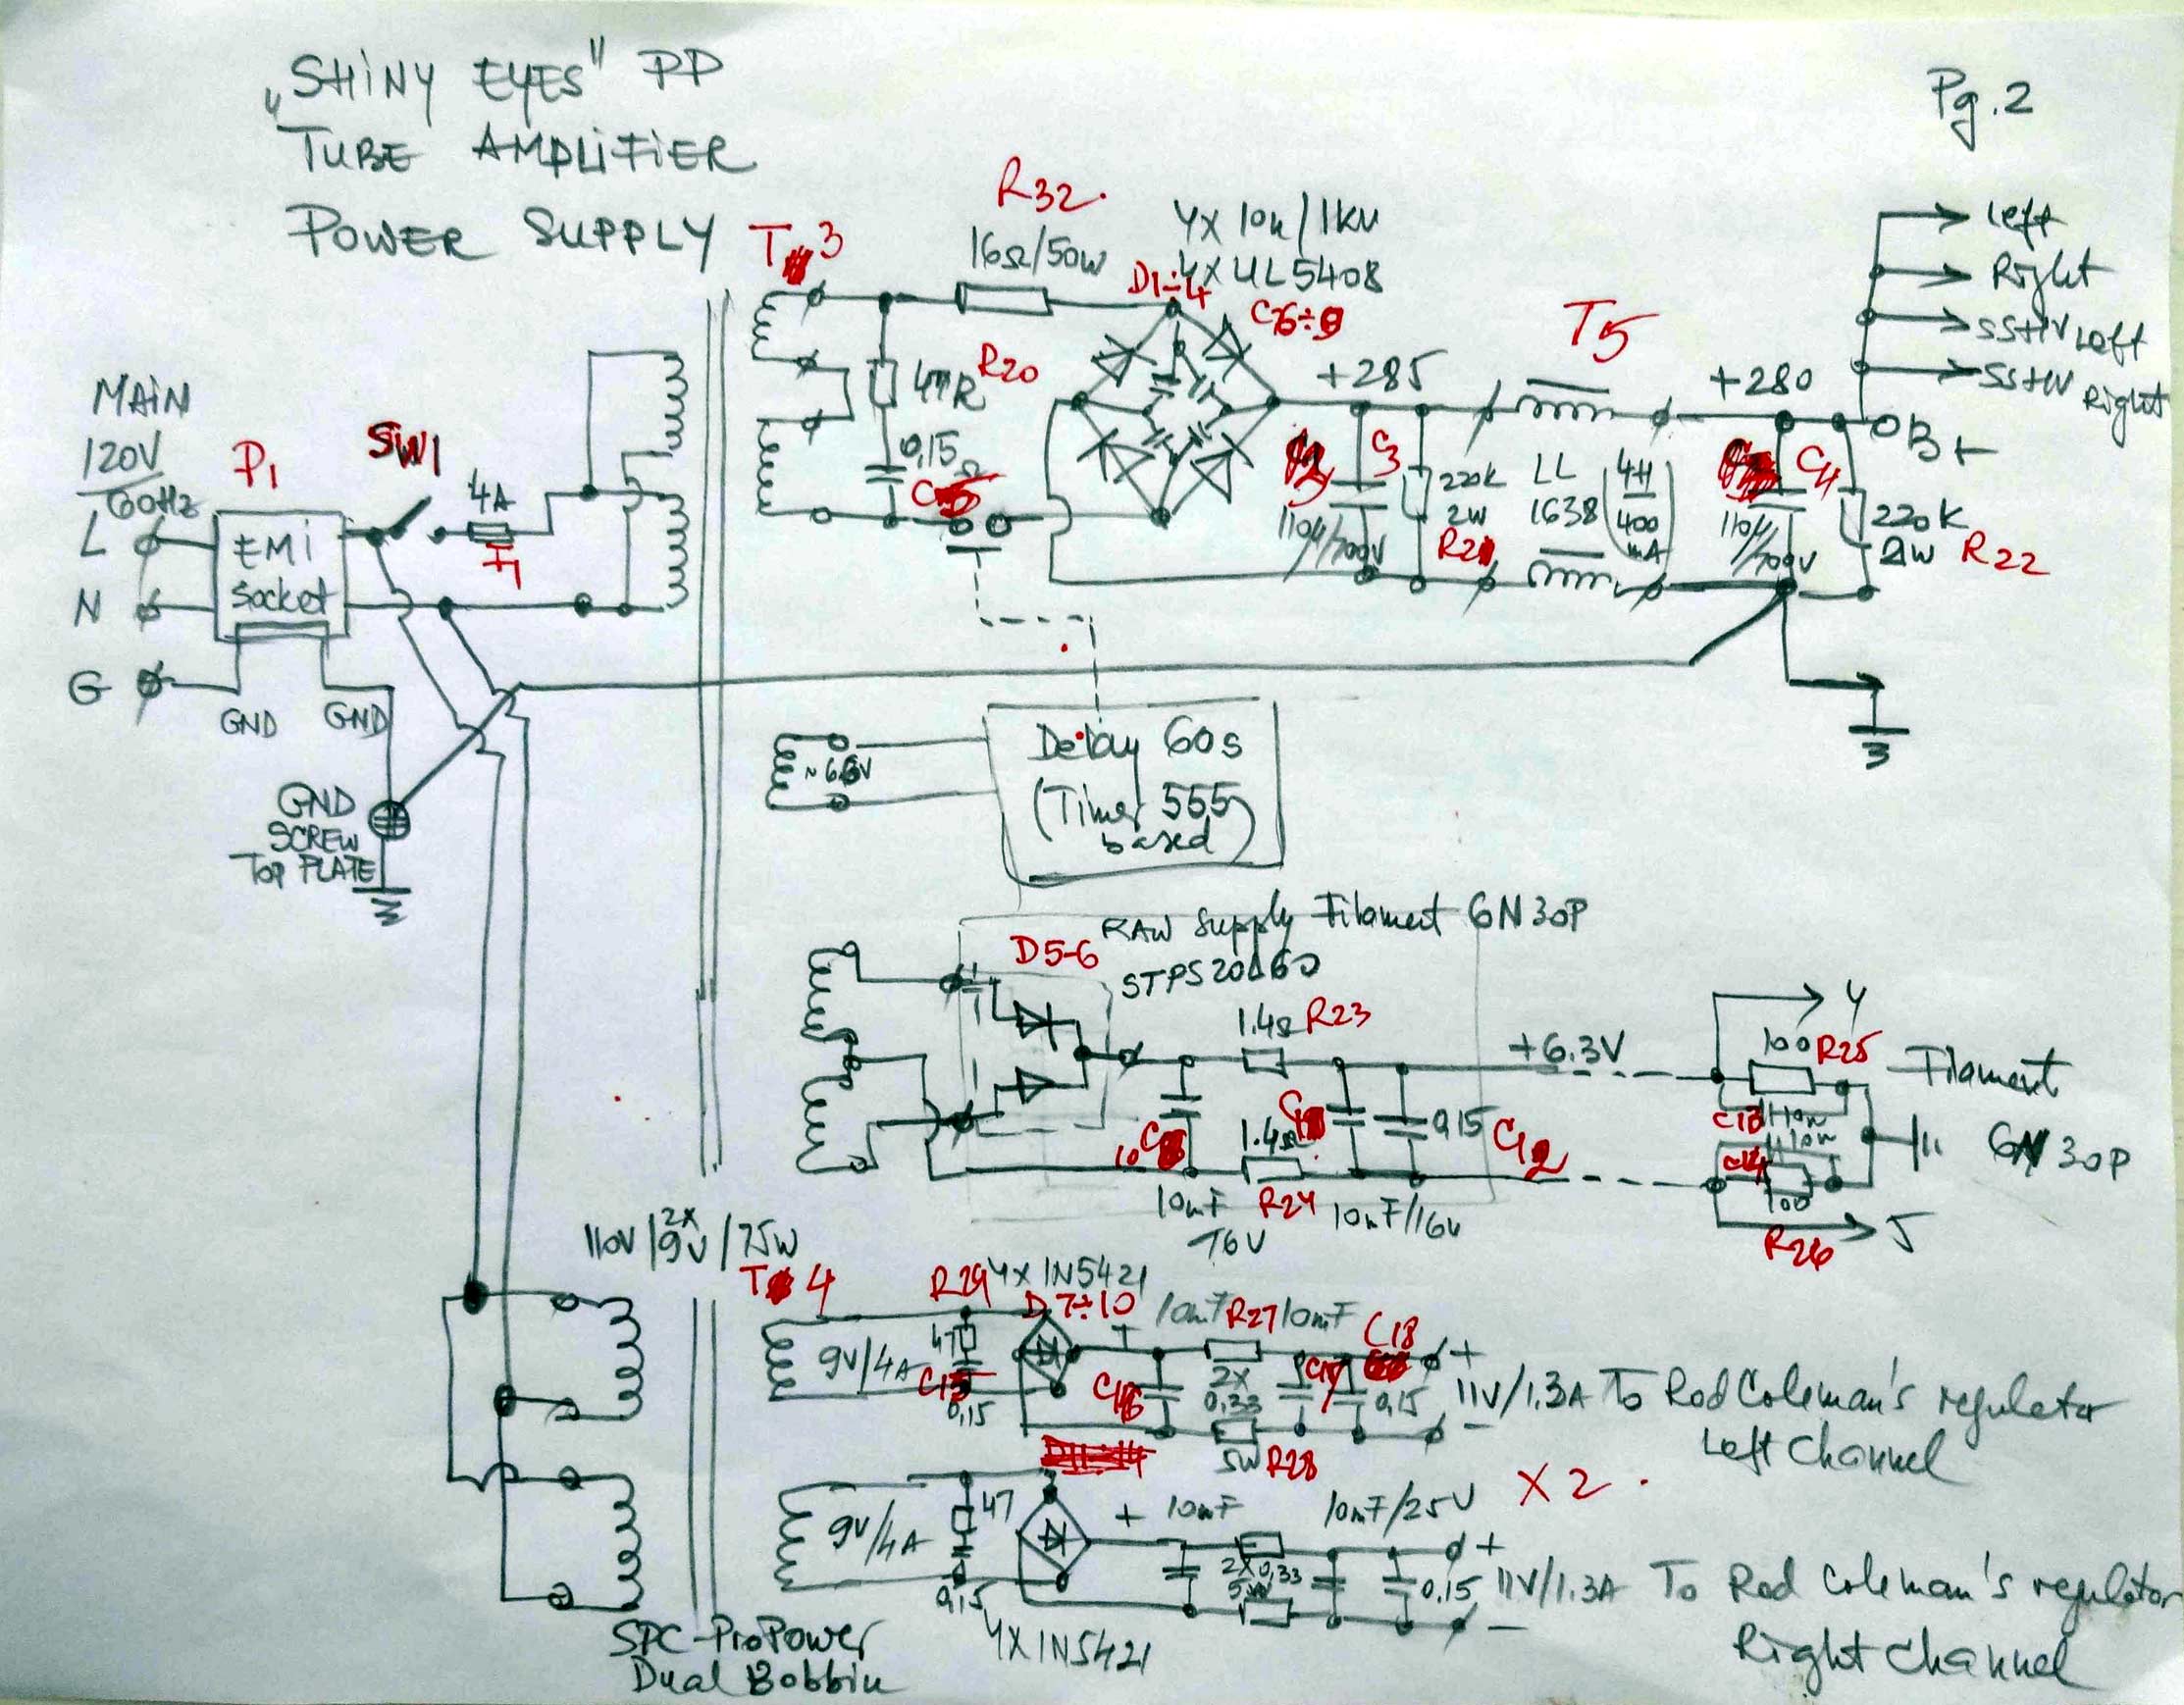 „SHINY EYES" PP
TUBE AMPLIFIER
POWER SUPPLY
Pg.2
R32
16Ω/50W
4X 10n/1KV
4X UL5408
D1÷4
T3
R20
47R
0,15
T5
+285
+280
Left
Right
SSHV Left
SSHV Right
B+
MAIN
120V
60Hz
P1
SW1
4A
F1
L
N
G
EMI
Socket
GND
GND
GND
SCREW
TOP PLATE
C3
110µ/700V
220K
2W
R21
LL
1638
4H
400
mA
C4
110µ/700V
220K
2W
R22
3
Delay 60s
(Timer 555
based)
RAW Supply Filament 6N30P
D5-6
1.4Ω R23
+6.3V
4
100 R25
Filament
6N30P
C13
10n
10n
C14
100
R26
5
0,15
C12
1.4Ω
R24
10mF
16V
10mF/16V
110V/2X9V/75W
T4
R29
4X 1N5421
D7÷10
10mF R27 10mF
C18
47
9V/4A
C15
0,15
C16
2X
0,33
5W R28
C17
0,15
+
11V/1.3A To Rod Coleman's regulator
Left Channel
X2
9V/4A
47
0,15
4X1N5421
+
10mF
2X0,33
5W
10mF/25V
0,15
+
11V/1.3A To Rod Coleman's regulator
Right Channel
SPC-ProPower
Dual Bobbin